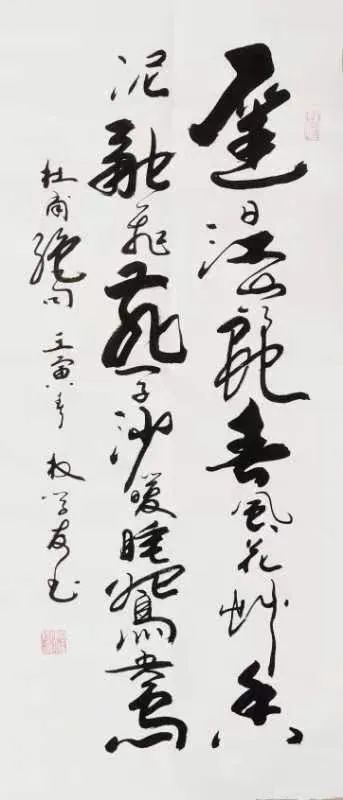 遲日江山麗春風花艸香
泥融飛燕子沙暖睡鴛鴦
杜甫絕句 壬寅年 牧學友书